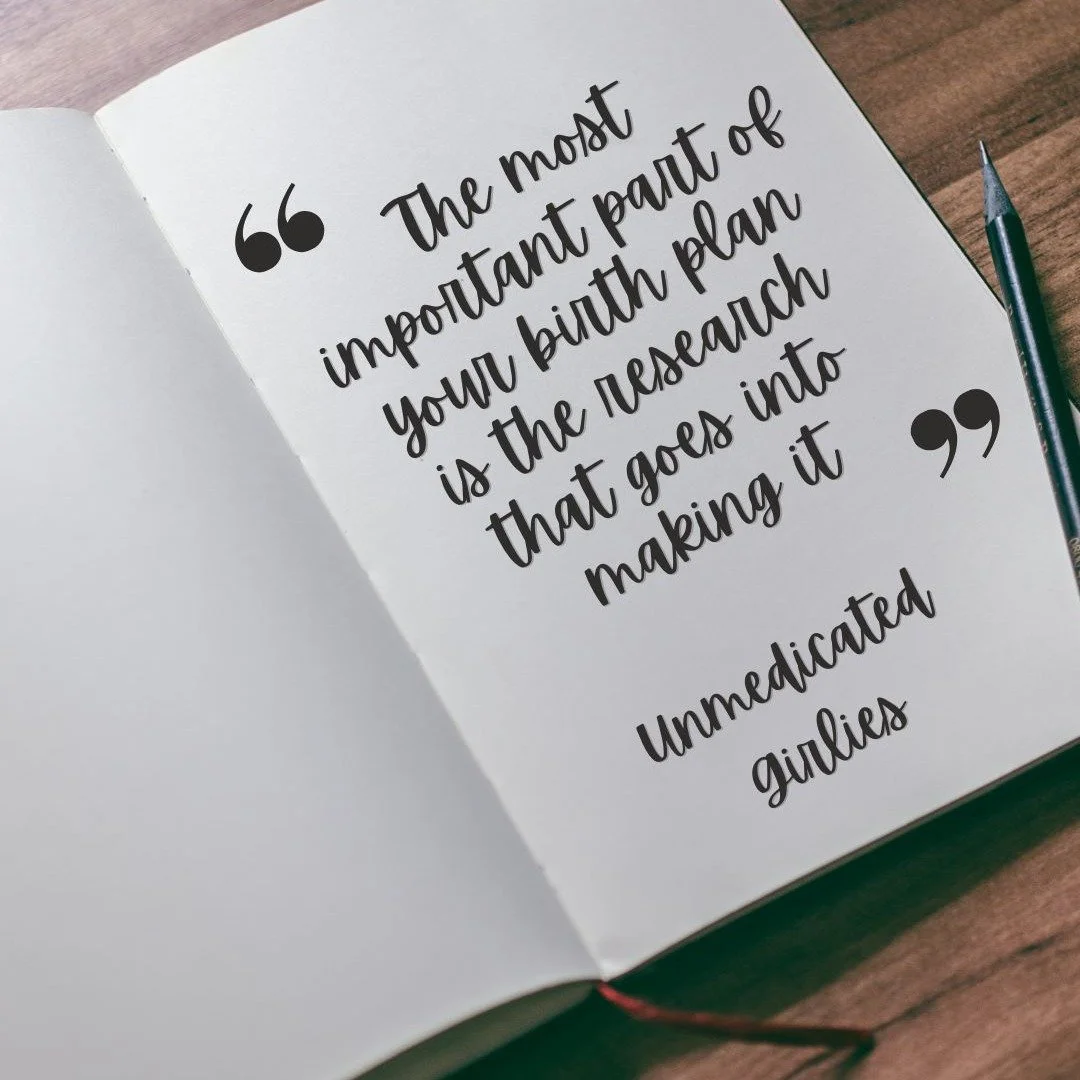 “ The most
important part of
your birth plan
is the research
that goes into
making it ”
Unmedicated
girlies